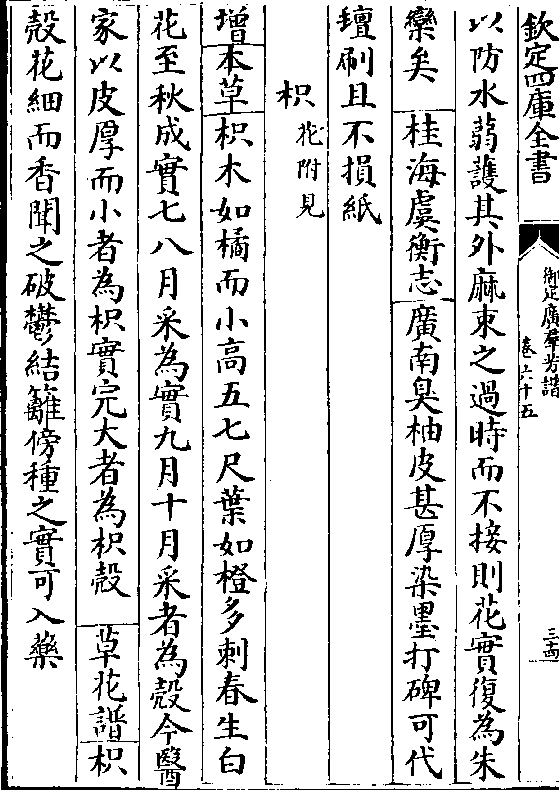 欽定四庫全書
御定廣羣芳譜
卷六十五
三十四
以防水蒻護其外麻束之過時而不接則花實復為朱
欒矣　桂海虞衡志廣南臭柚皮甚厚染墨打碑可代
氊刷且不損紙
枳花附見
增本草枳木如橘而小高五七尺葉如橙多刺春生白
花至秋成實七八月采為實九月十月采者為殼今醫
家以皮厚而小者為枳實完大者為枳殼　草花譜枳
殼花細而香聞之破鬱結籬傍種之實可入藥